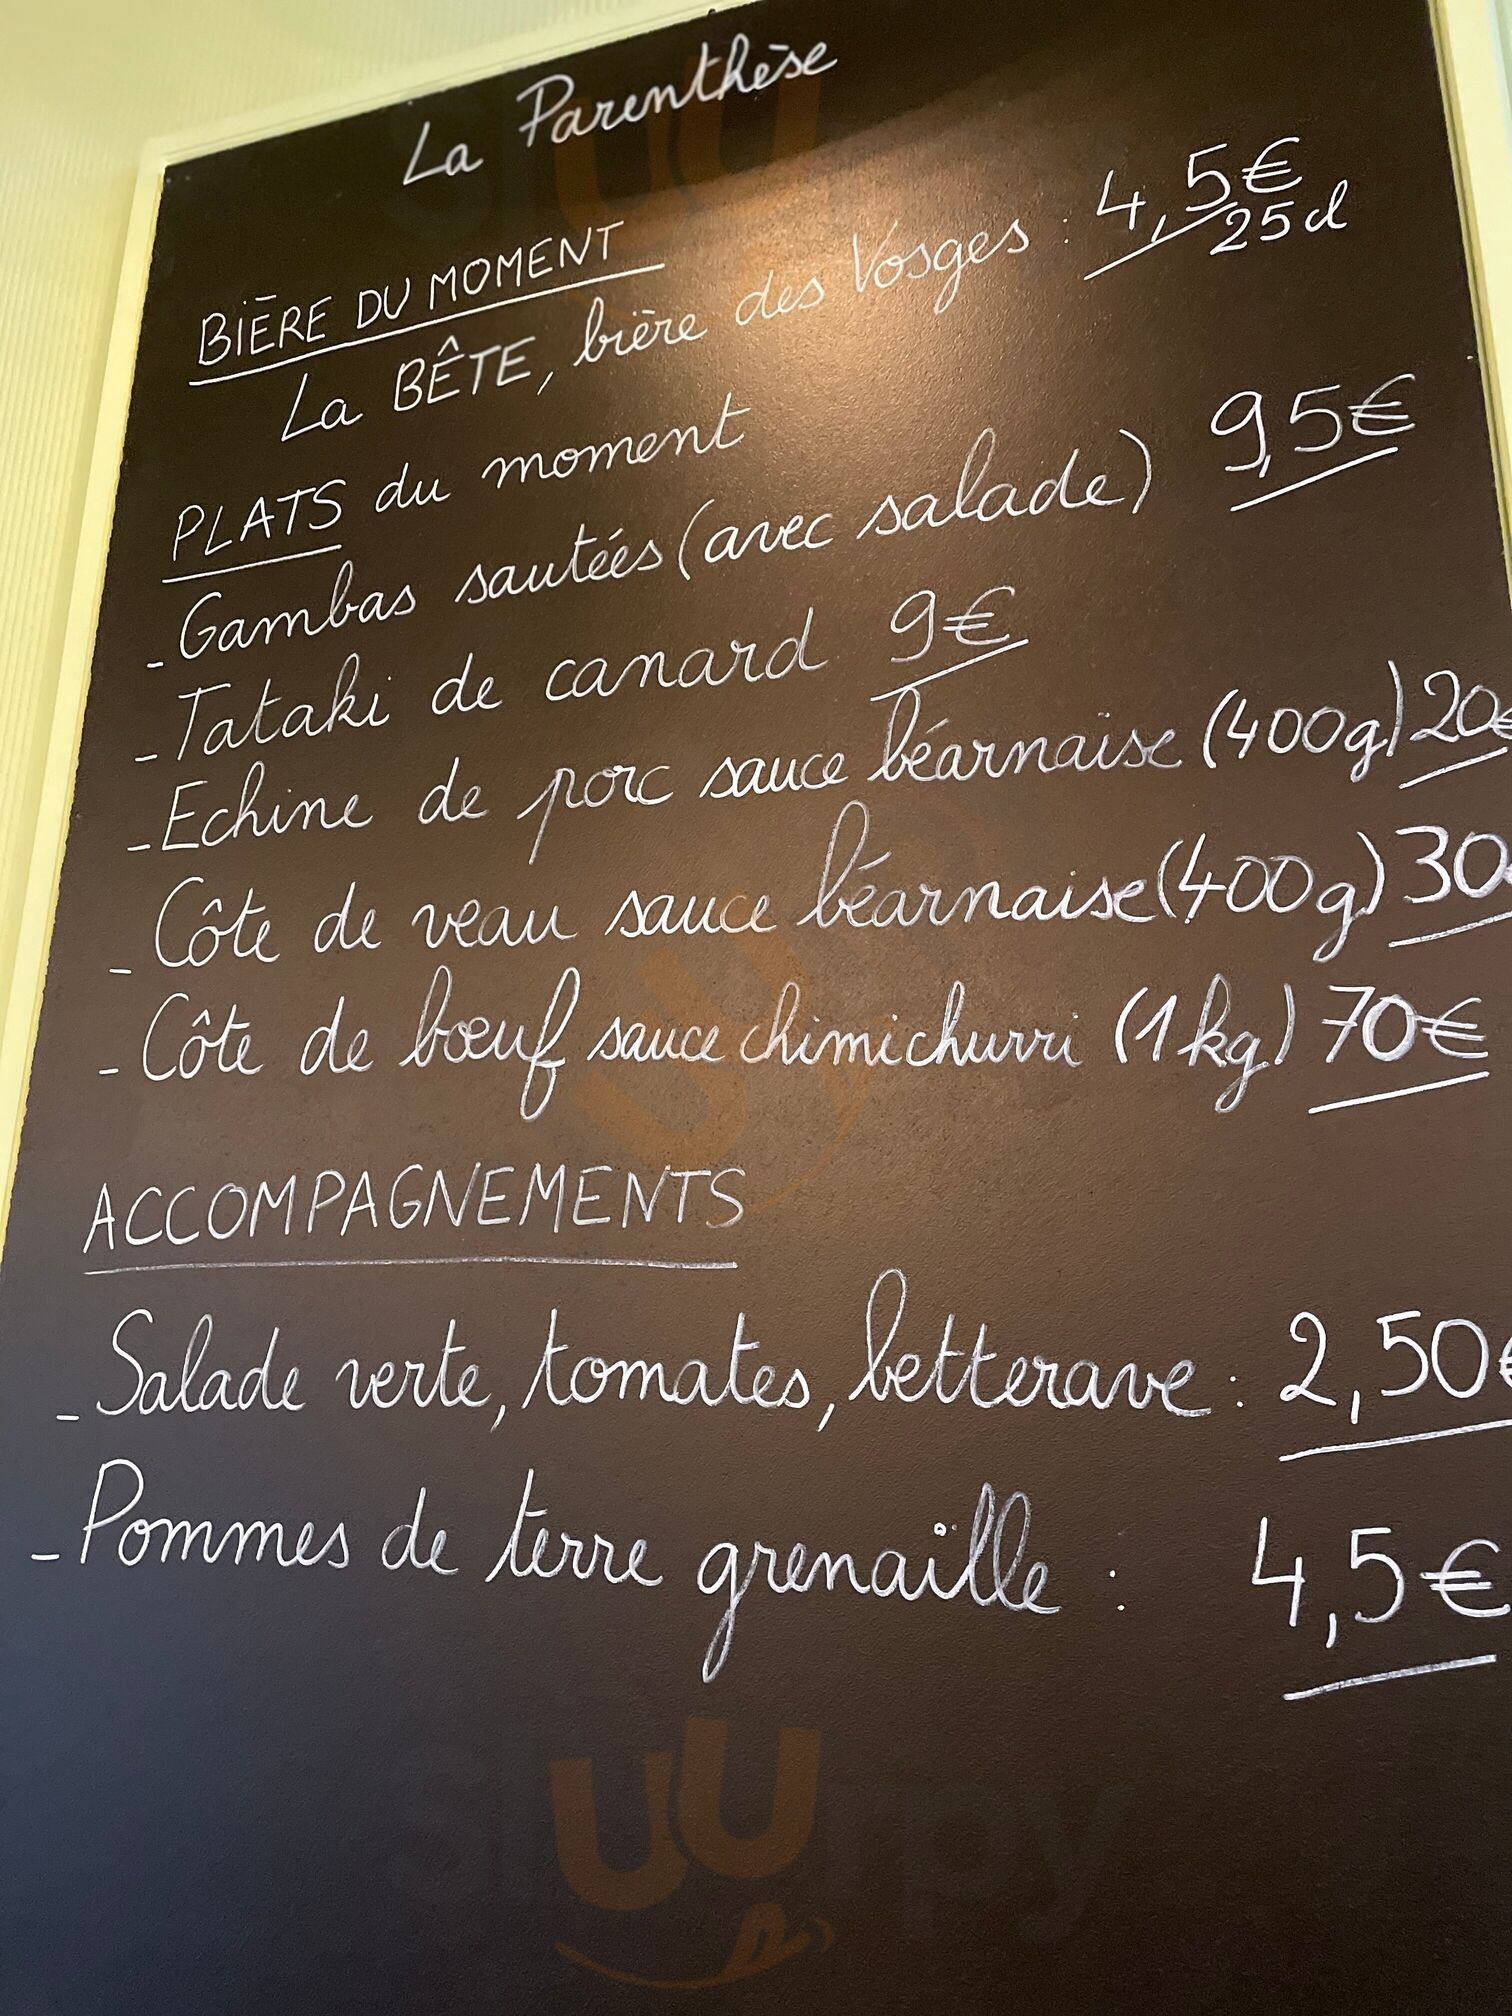 La Parenthèse
BIÈRE DU MOMENT
La BÊTE, bière des Vosges : 4,5€
25cl
PLATS du moment
- Gambas sautéés (avec salade) 9,5€
- Tataki de canard 9€
- Echine de porc sauce béarnaise (400g) 20€
- Côte de veau sauce béarnaise (400g) 30
- Côte de bœuf sauce chimichurri (1kg) 70€
ACCOMPAGNEMENTS
- Salade verte, tomates, betterave : 2,50€
- Pommes de terre grenaille : 4,5€
sluurpy